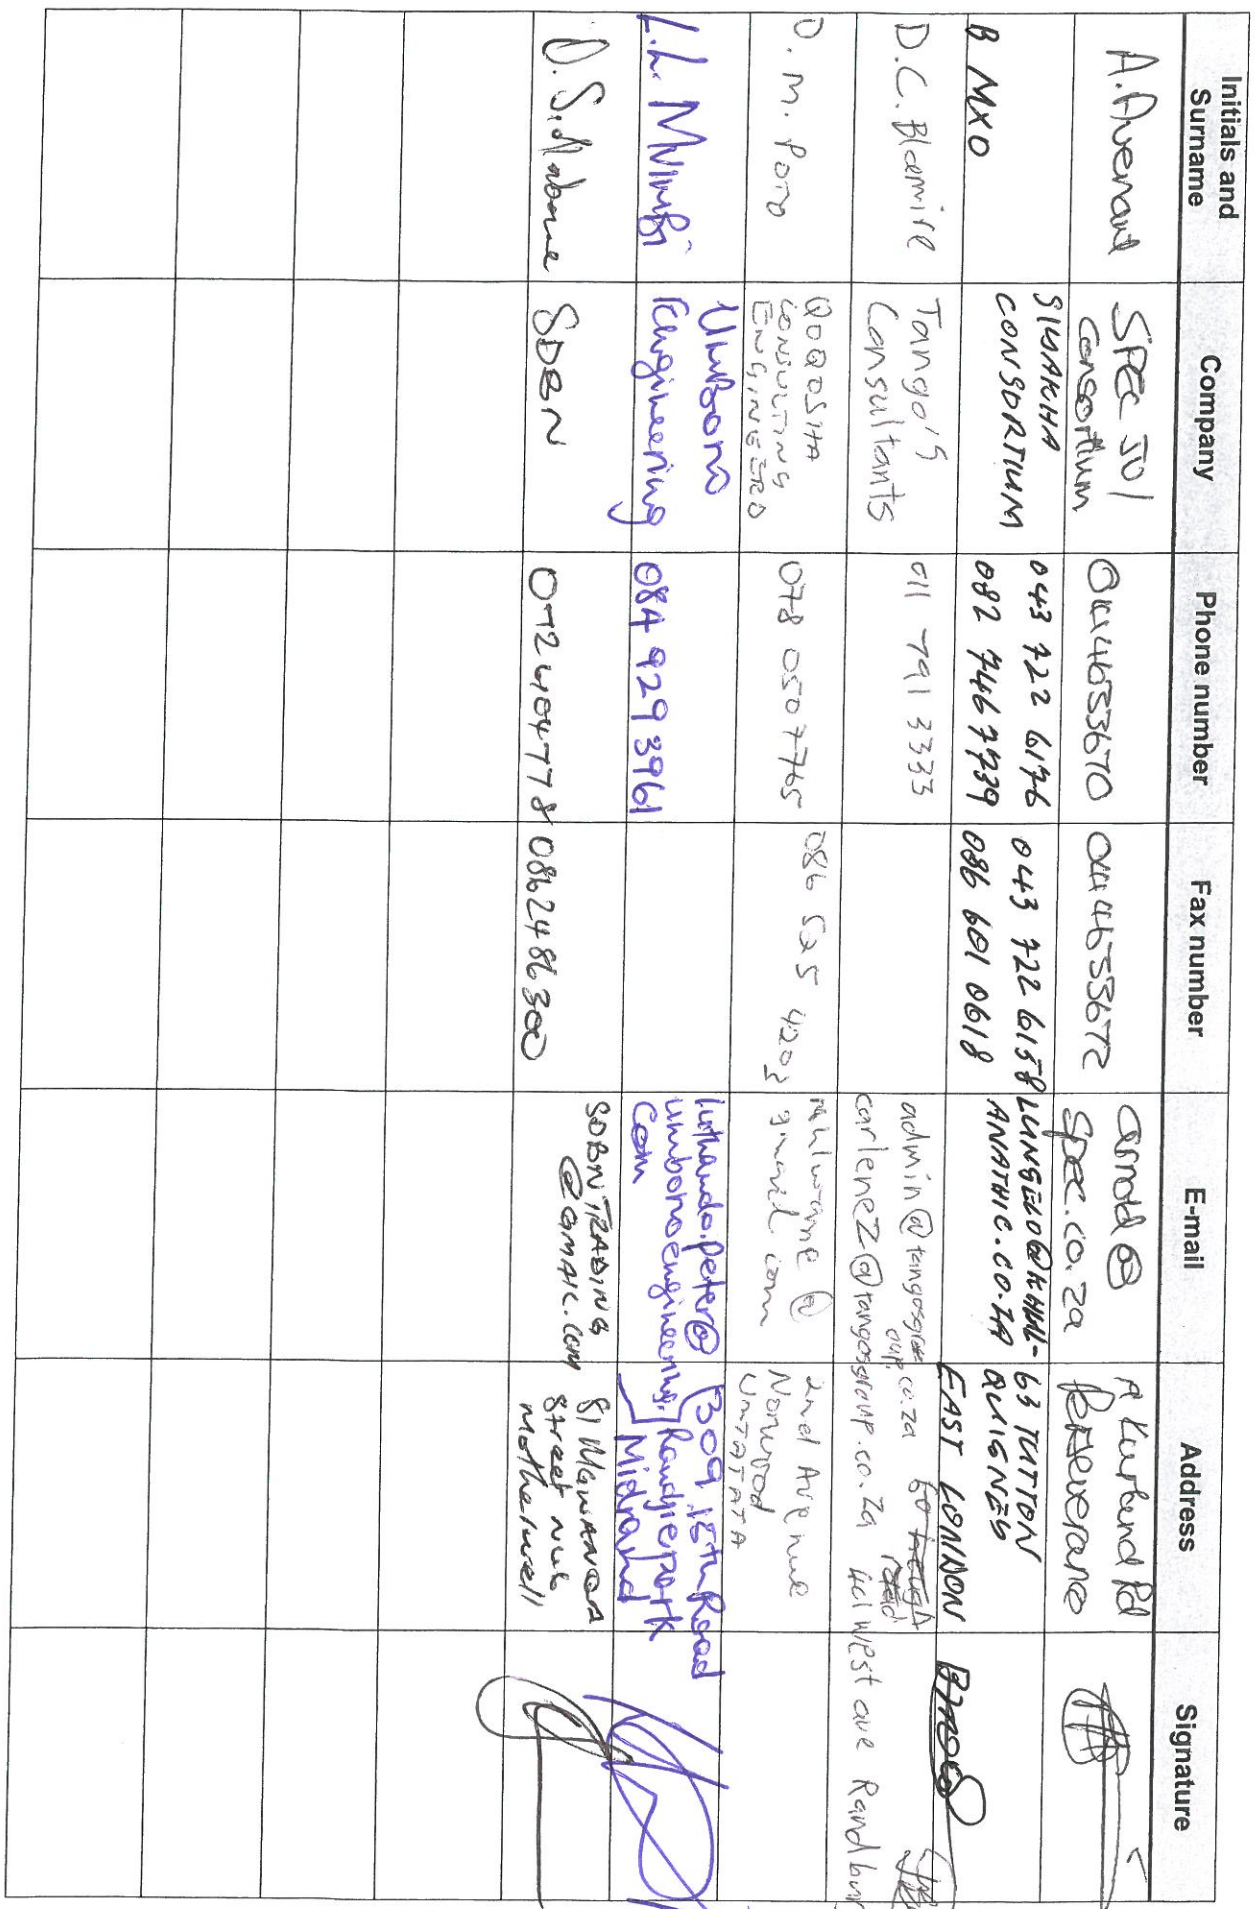 Initials and
Surname
Company
Phone number
Fax number
E-mail
Address
Signature
A. Avenant
SPEC 501
Consortium
0444633670
0444633672
arnold@
spec.co.za
Kurland Rd
Perseverance
B MXO
SIWAKHA
CONSORTIUM
043 722 6176
082 746 7739
043 722 6158
086 601 0618
LUNGELO@KHUL-
ANATHIC.CO.ZA
63 TUTTON
QUIGNEY
EAST LONDON
D.C. Blemire
Tango's
Consultants
011 791 3333
admin@tangosgr
oup.co.za
carlene2@tangosgroup.co.za
road
West ave Randbur
D. M. Poto
QOQOSHA
CONSULTING
ENGINEERS
078 050 7765
086 525 4203
gmail com
2nd Avenue
Norwood
UMTATA
L.L. Mvimbi
Umbono
Engineering
084 929 3961
luthando.peter@
umbonoengineering.
com
1309, 15th Road
Randjiepark
Midrand
SDBN
0724104778
0862486300
SDBNTRADING
@GMAIL.COM
81
Street
Motherwell